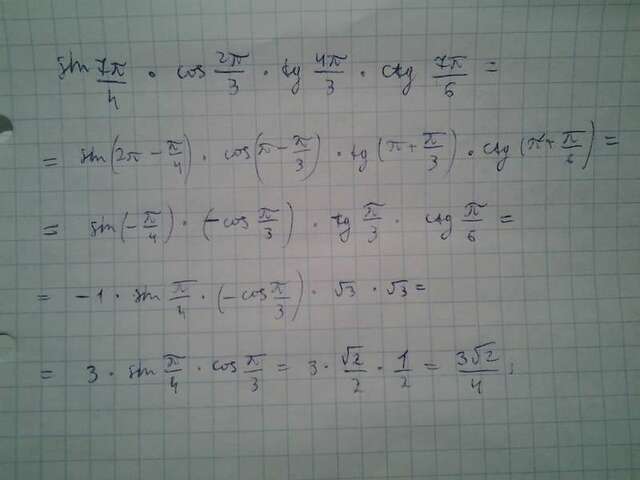 sin 7π/4 · cos 2π/3 · tg 4π/3 · ctg 7π/6 =
= sin(2π - π/4) · cos(π - π/3) · tg(π + π/3) · ctg(π + π/6) =
= sin(-π/4) · (-cos π/3) · tg π/3 · ctg π/6 =
= -1 · sin π/4 · (-cos π/3) · √3 · √3 =
= 3 · sin π/4 · cos π/3 = 3 · √2/2 · 1/2 = 3√2/4 ;